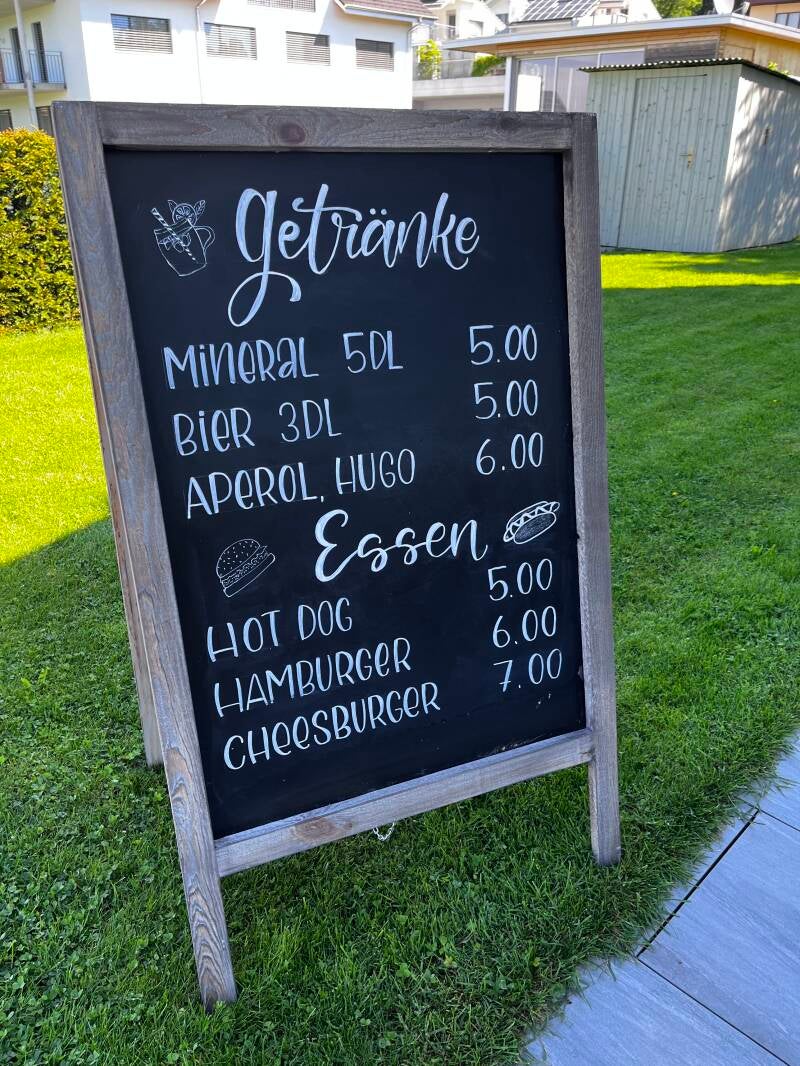 Getränke
MINERAL 5DL 5.00
BIER 3DL 5.00
APEROL, HUGO 6.00
Essen
HOT DOG 5.00
HAMBURGER 6.00
CHEESBURGER 7.00